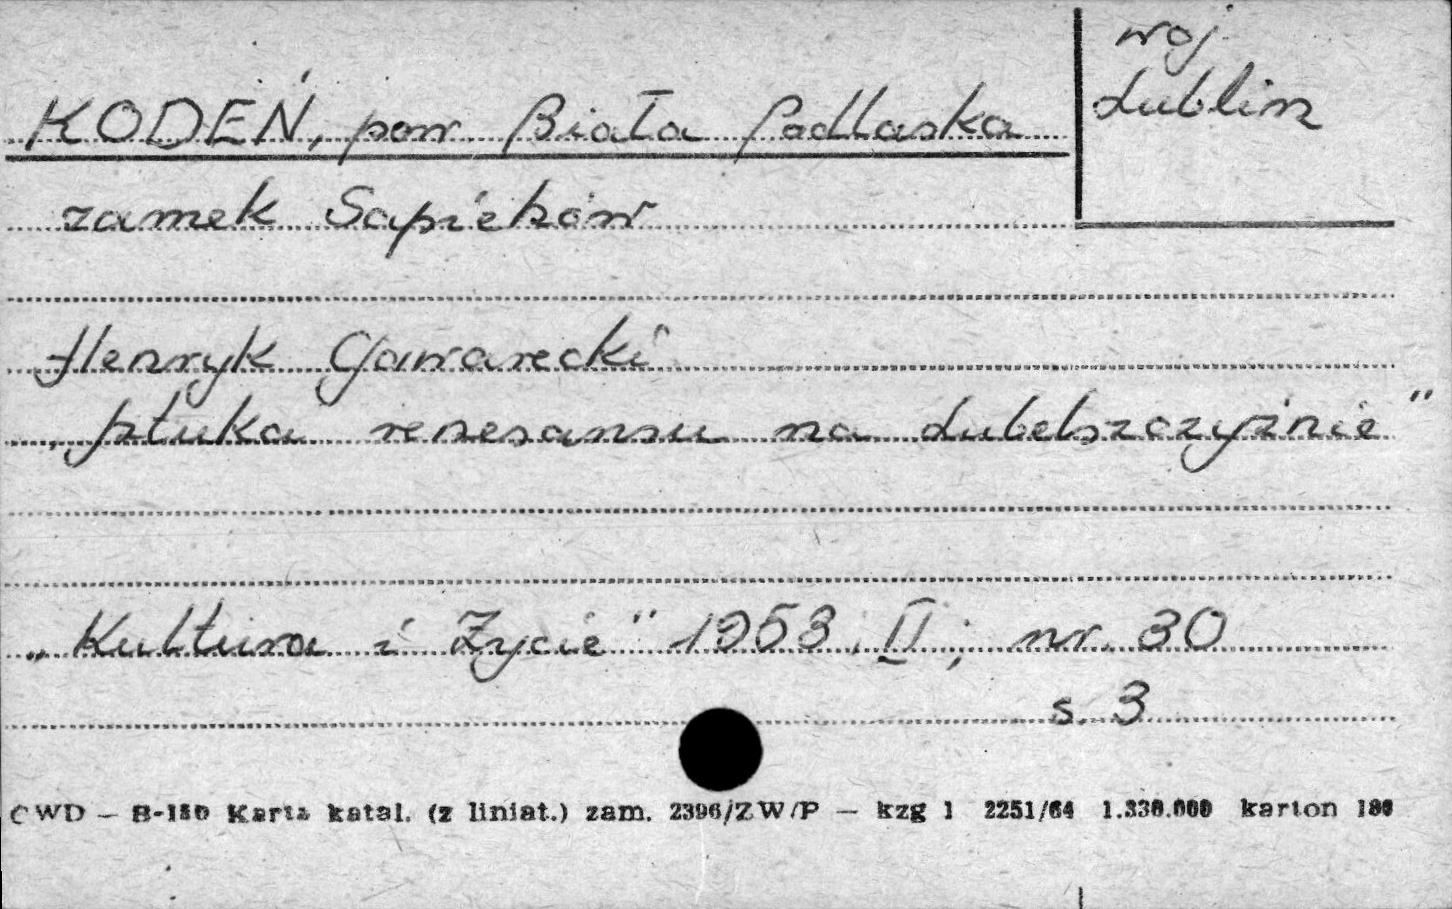 woj.
Lublin
KODEŃ, pow Biała Podlaska
zamek Sapiehów
Henryk Gawarecki
„Sztuka renesansu na Lubelszczyźnie"
„Kultura i Życie" 1953, II; nr. 30
s. 3
CWD — B-180 Karta katal. (z liniat.) zam. 2396/ZW/P — kzg 1 2251/64 1.330.000 karton 180